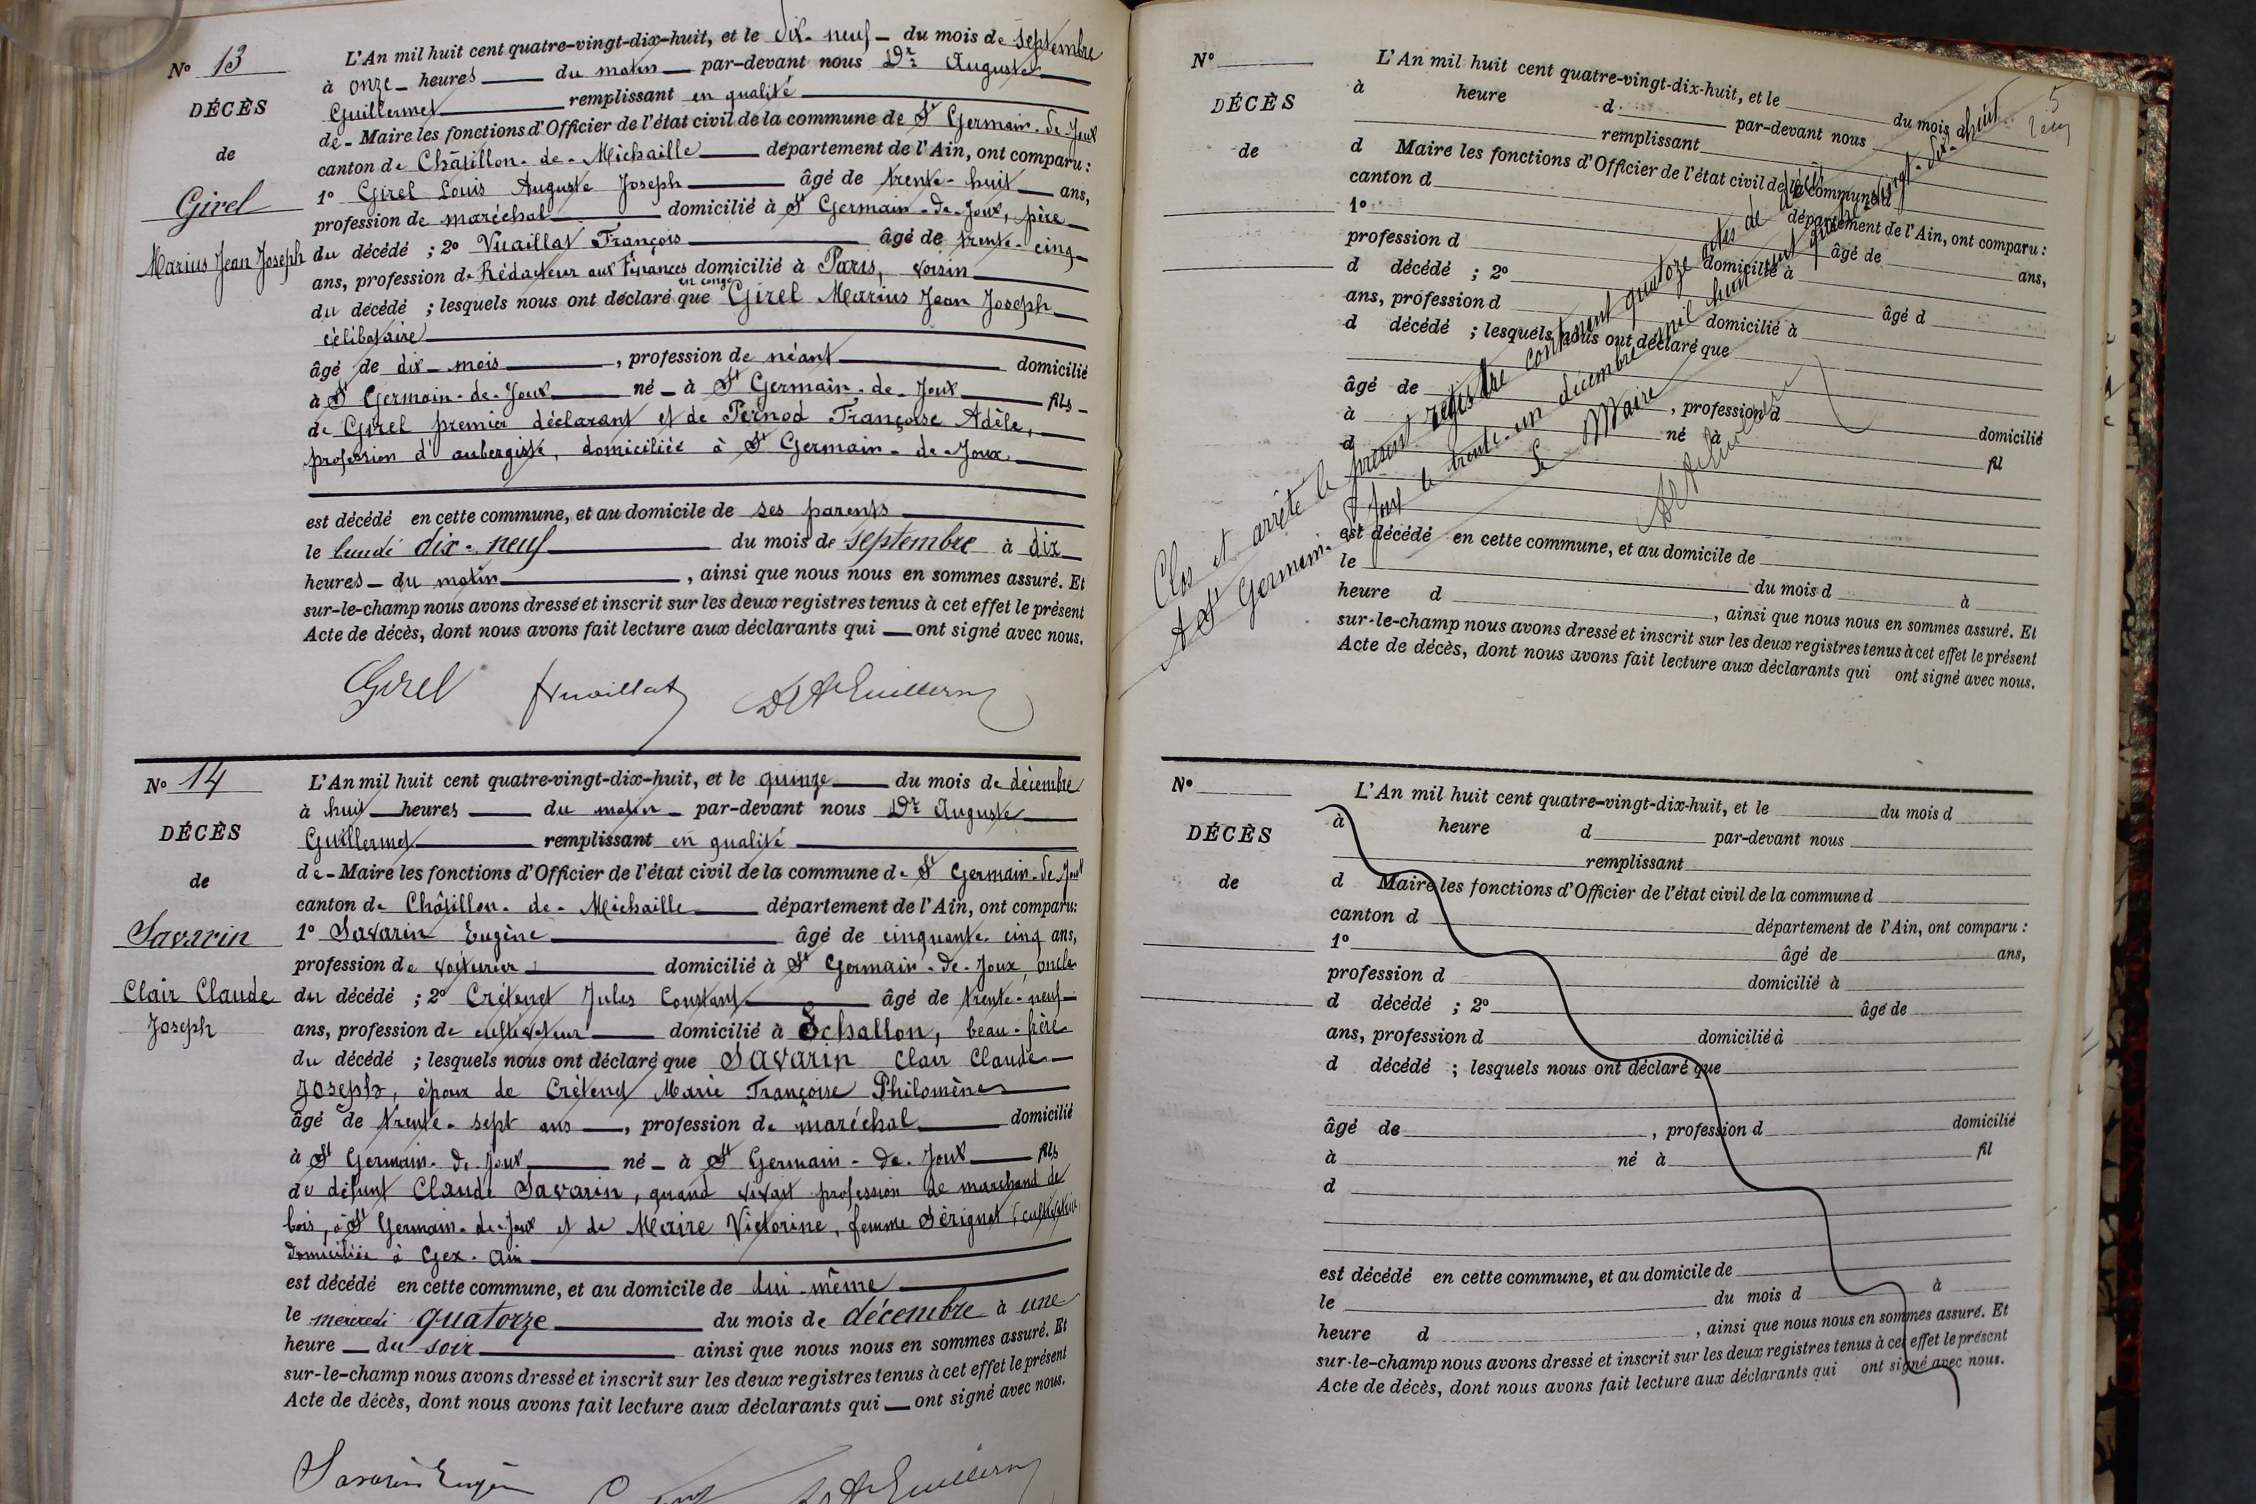 N° 13
DÉCÈS
de
Girel
Marius Jean Joseph
L'An mil huit cent quatre-vingt-dix-huit, et le dix-neuf du mois de septembre
à onze heures du matin par-devant nous Dr Auguste
Guillermet remplissant en qualité
de Maire les fonctions d'Officier de l'état civil de la commune de St Germain-de-Joux
canton de Châtillon-de-Michaille département de l'Ain, ont comparu :
1° Girel Louis Auguste Joseph âgé de trente-huit ans,
profession de maréchal domicilié à St Germain-de-Joux, père
du décédé ; 2° Vuaillat François âgé de trente-cinq
ans, profession de Rédacteur aux Finances domicilié à Paris, voisin
en congé
du décédé ; lesquels nous ont déclaré que Girel Marius Jean Joseph
célibataire
âgé de dix-mois, profession de néant domicilié
à St Germain-de-Joux né à St Germain-de-Joux fils
de Girel premier déclarant et de Pernod Françoise Adèle,
profession d'aubergiste, domiciliée à St Germain-de-Joux.
est décédé en cette commune, et au domicile de ses parents
le lundi dix-neuf du mois de septembre à dix
heures du matin, ainsi que nous nous en sommes assuré. Et
sur-le-champ nous avons dressé et inscrit sur les deux registres tenus à cet effet le présent
Acte de décès, dont nous avons fait lecture aux déclarants qui ont signé avec nous.
Girel Fvuaillat Dr A Guillermet
N° 14
DÉCÈS
de
Savarin
Clair Claude
Joseph
L'An mil huit cent quatre-vingt-dix-huit, et le quinze du mois de décembre
à huit heures du matin par-devant nous Dr Auguste
Guillermet remplissant en qualité
de Maire les fonctions d'Officier de l'état civil de la commune de St Germain-de-Joux
canton de Châtillon-de-Michaille département de l'Ain, ont comparu:
1° Savarin Eugène âgé de cinquante-cinq ans,
profession de voiturier domicilié à St Germain-de-Joux, oncle
du décédé ; 2° Crétenet Jules Constant âgé de trente-neuf
ans, profession de cultivateur domicilié à Echallon, beau-frère
du décédé ; lesquels nous ont déclaré que Savarin Clair Claude
Joseph, époux de Crétenet Marie Françoise Philomène
âgé de trente-sept ans, profession de maréchal domicilié
à St Germain-de-Joux né à St Germain-de-Joux fils
de défunt Claude Savarin, quand vivait profession de marchand de
bois, à St Germain-de-Joux et de Marie Victorine, femme Sérignat, cultivatrice
domiciliée à Gex. Ain
est décédé en cette commune, et au domicile de lui-même
le mercredi quatorze du mois de décembre à une
heure du soir ainsi que nous nous en sommes assuré. Et
sur-le-champ nous avons dressé et inscrit sur les deux registres tenus à cet effet le présent
Acte de décès, dont nous avons fait lecture aux déclarants qui ont signé avec nous.
Savarin Eugène Dr A Guillermet
5
N°
DÉCÈS
de
L'An mil huit cent quatre-vingt-dix-huit, et le du mois d
à heure d par-devant nous
remplissant
d Maire les fonctions d'Officier de l'état civil de la commune d
canton d département de l'Ain, ont comparu :
1° âgé de ans,
profession d domicilié à
d décédé ; 2° âgé d
ans, profession d domicilié à
d décédé ; lesquels nous ont déclaré que
âgé de , profession d domicilié
à né à fil
d
est décédé en cette commune, et au domicile de
le du mois d à
heure d , ainsi que nous nous en sommes assuré. Et
sur-le-champ nous avons dressé et inscrit sur les deux registres tenus à cet effet le présent
Acte de décès, dont nous avons fait lecture aux déclarants qui ont signé avec nous.
Clos et arrêté le présent registre contenant quatorze actes de décès
A St Germain-de-Joux le trente-un décembre mil huit cent quatre-vingt-dix-huit
Le Maire
Dr A Guillermet
N°
DÉCÈS
de
L'An mil huit cent quatre-vingt-dix-huit, et le du mois d
à heure d par-devant nous
remplissant
d Maire les fonctions d'Officier de l'état civil de la commune d
canton d département de l'Ain, ont comparu :
1° âgé de ans,
profession d domicilié à
d décédé ; 2° âgé de
ans, profession d domicilié à
d décédé ; lesquels nous ont déclaré que
âgé de , profession d domicilié
à né à fil
d
est décédé en cette commune, et au domicile de
le du mois d à
heure d , ainsi que nous nous en sommes assuré. Et
sur-le-champ nous avons dressé et inscrit sur les deux registres tenus à cet effet le présent
Acte de décès, dont nous avons fait lecture aux déclarants qui ont signé avec nous.